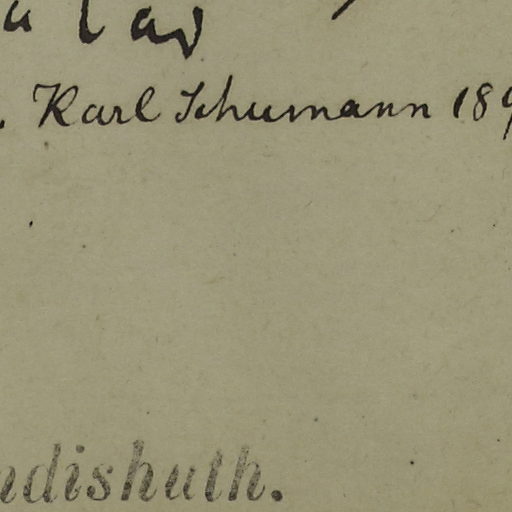 . Karl Schumann 189
ndishuth.